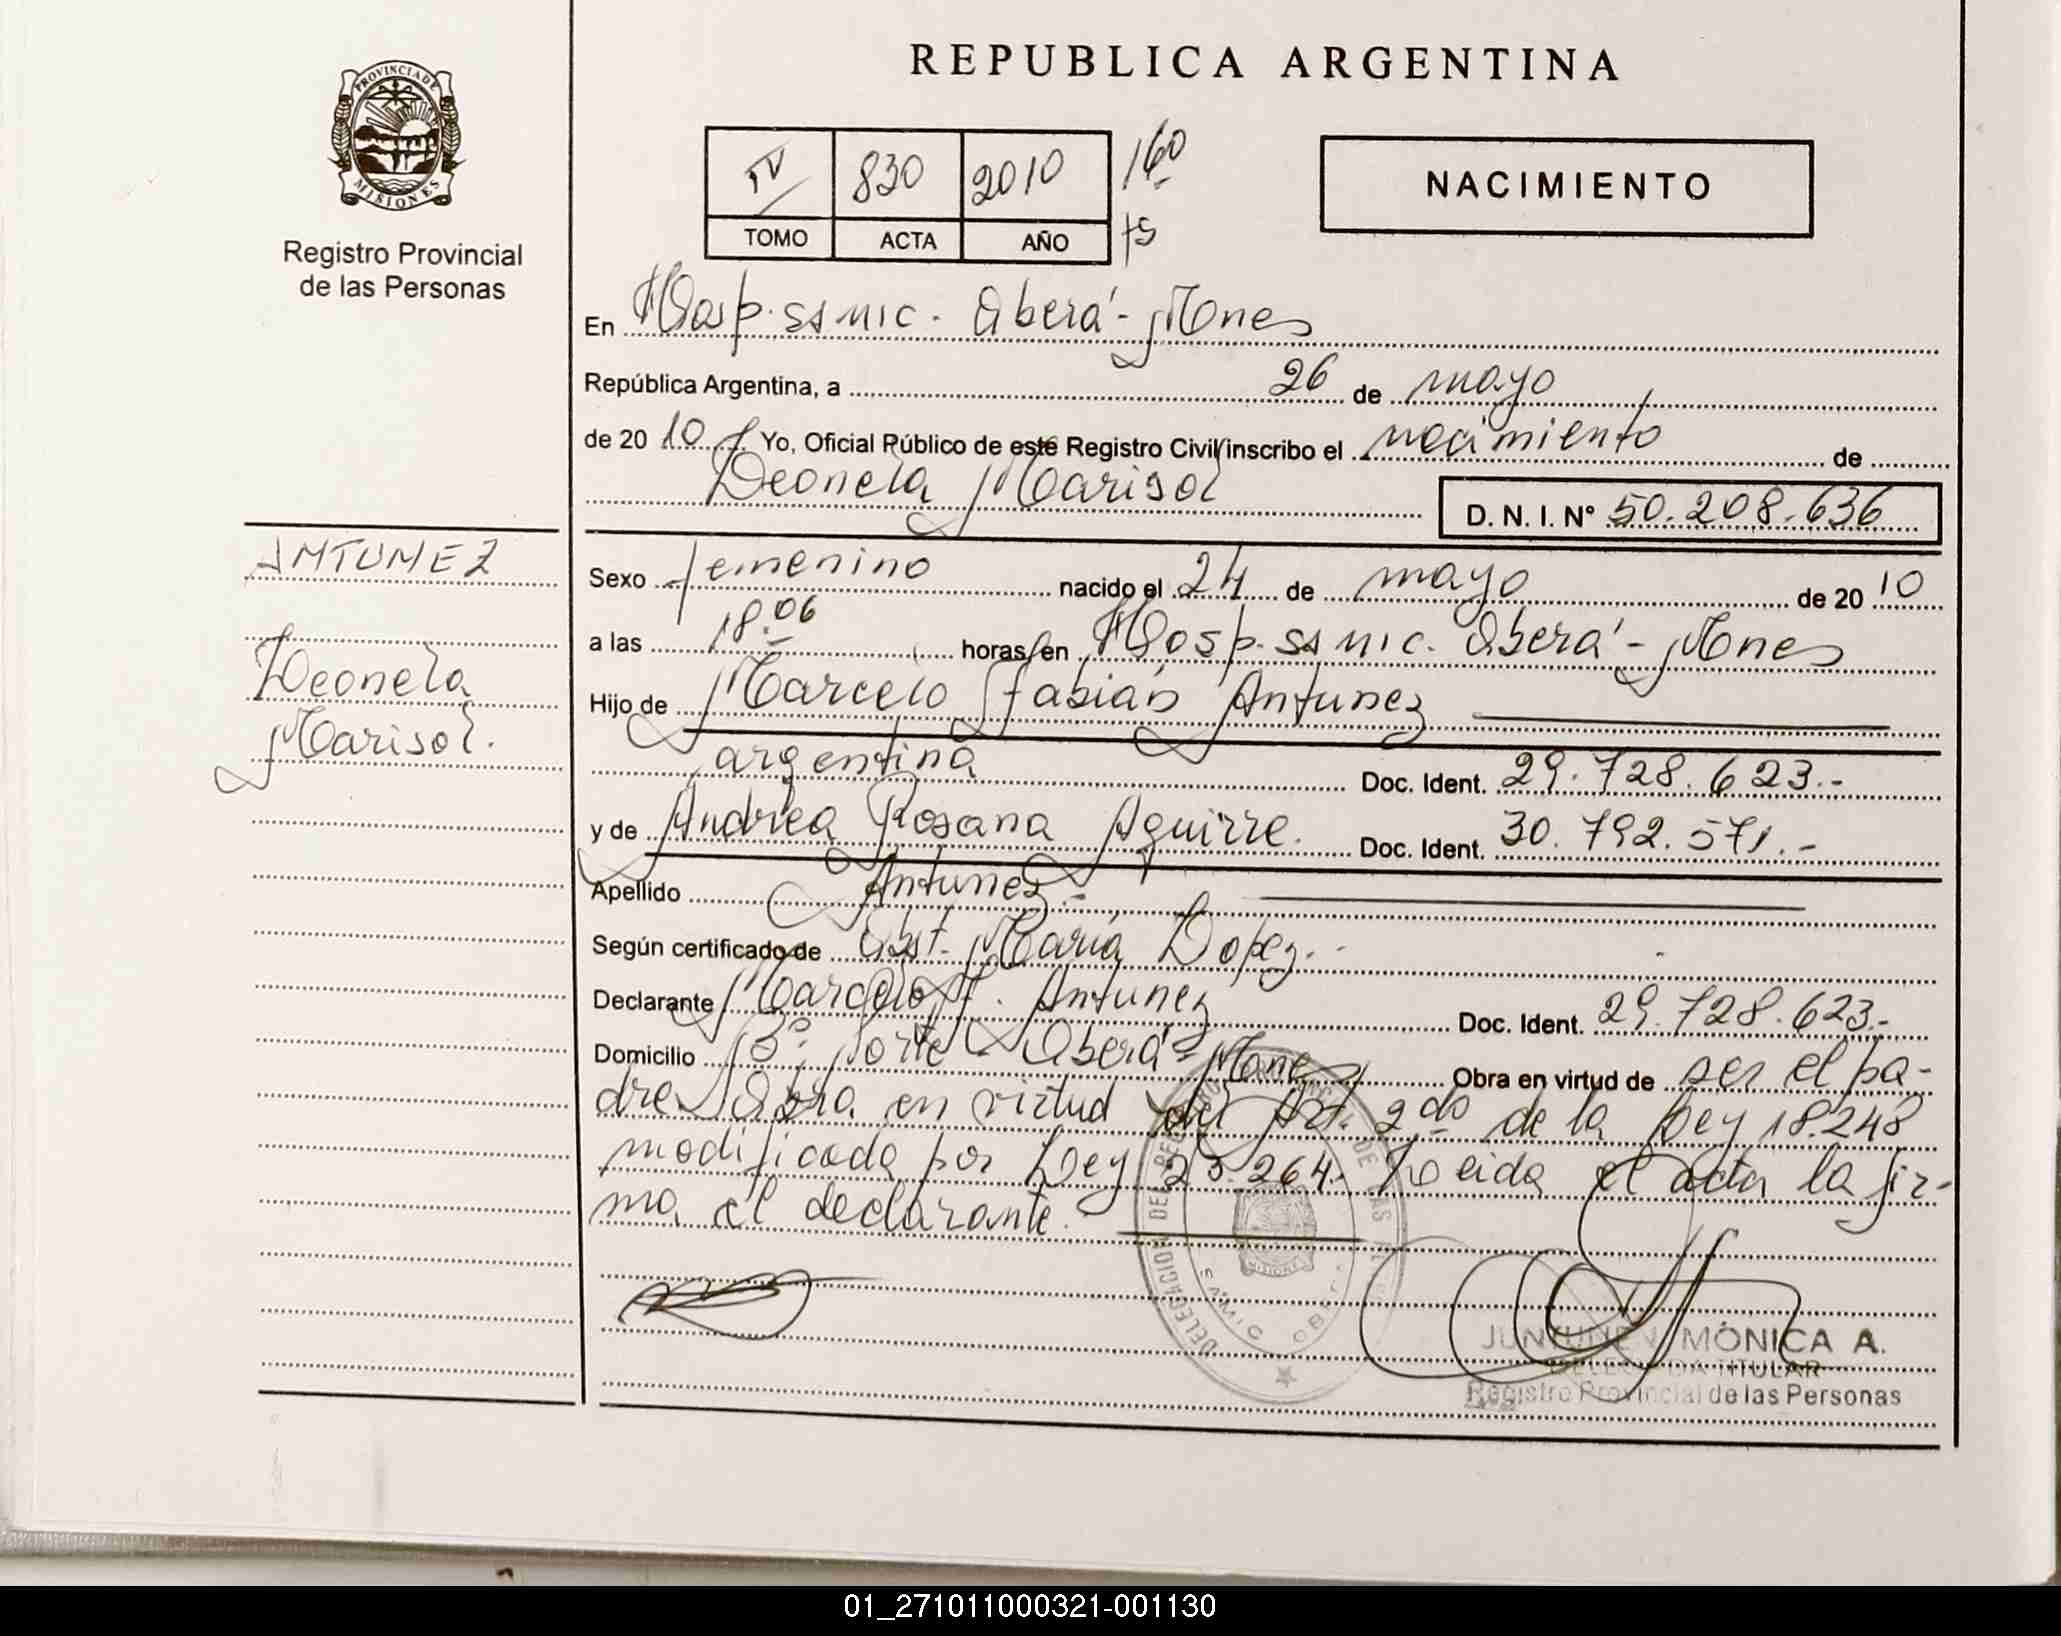 REPUBLICA ARGENTINA
PROVINCIA DE
MISIONES
Registro Provincial
de las Personas
IV 830 2010 160
TOMO ACTA AÑO fs
NACIMIENTO
En Hosp. SAMIC. Oberá - Mnes
República Argentina, a 26 de mayo
de 2010. Yo, Oficial Público de este Registro Civil inscribo el nacimiento de
Leonela Marisol
D. N. I. N° 50.208.636
ANTUNEZ
Leonela
Marisol.
Sexo femenino nacido el 24 de mayo de 2010
a las 18.06 horas en Hosp. SAMIC. Oberá - Mnes
Hijo de Marcelo Fabián Antunez
argentina Doc. Ident. 29.728.623.-
y de Andrea Rosana Aguirre. Doc. Ident. 30.792.571.-
Apellido Antunez.-
Según certificado de Obst. María Lopez.-
Declarante Marcelo F. Antunez Doc. Ident. 29.728.623.-
Domicilio Bº Norte - Oberá - Mnes Obra en virtud de ser el pa-
dre. Obra en virtud del Art. 2do de la Ley 18.248
modificada por Ley 23.264. Leida el acta la fir-
ma el declarante.
DELEGACION DEL REGISTRO PROVINCIAL DE LAS
MISIONES
SAMIC OBERA
MÓNICA A.
DELEGADA TITULAR
Registro Provincial de las Personas
01_271011000321-001130